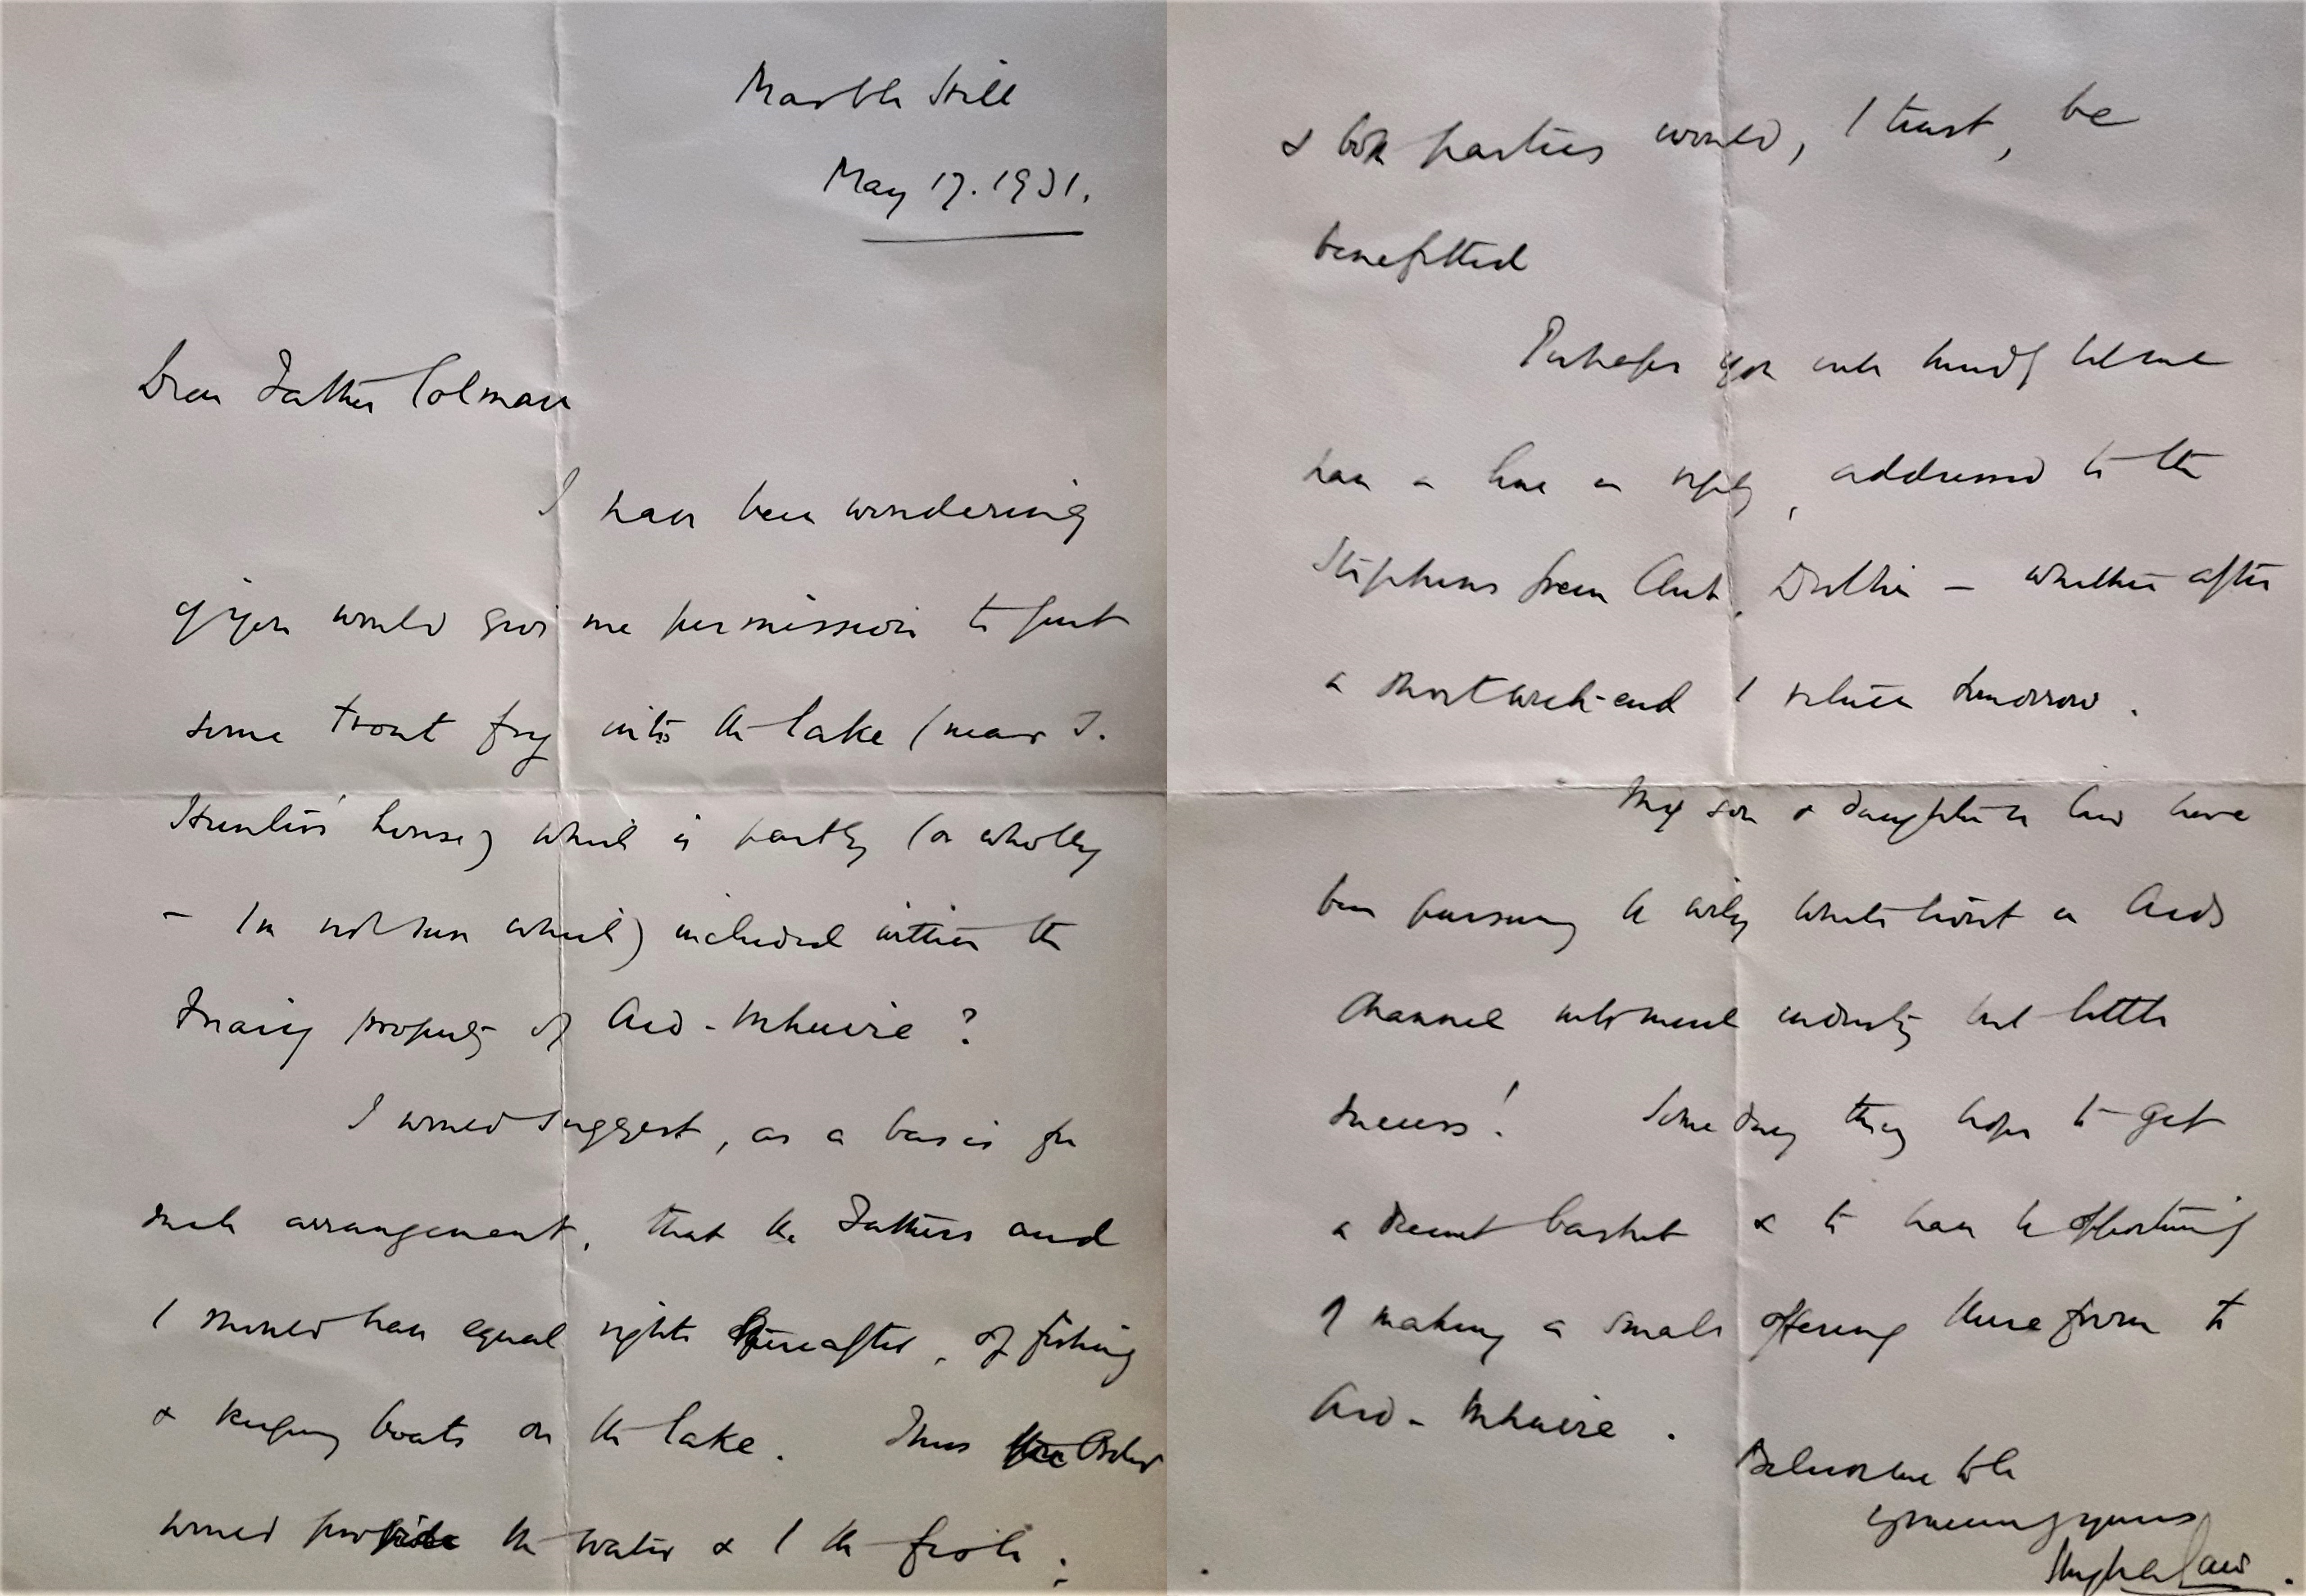 Marble Hill
May 17. 1931.
Dear Father Colman
I have been wondering
if you would give me permission to put
some trout fry into the lake (near J.
house) which is partly (or wholly
- I'm not sure which) included within the
property of Ard-Mhuire?
I would suggest, as a basis for
such arrangement, that the Fathers and
I should have equal rights thereafter, of fishing
& keeping boats on the lake. Thus the Order
would provide the water & I the fish;
& both parties would, I trust, be
benefitted
Perhaps you will kindly let me
have a line in reply, addressed to the
Stephens Green Club, Dublin - whither after
a short week-end I return tomorrow.
My son & daughter in law have
been pursuing the wily white trout in Ards
Channel with much industry but little
success! Some day they hope to get
a decent basket & to have the opportunity
of making a small offering therefrom to
Ard-Mhuire.
Believe me to be
yours
Hugh Law.